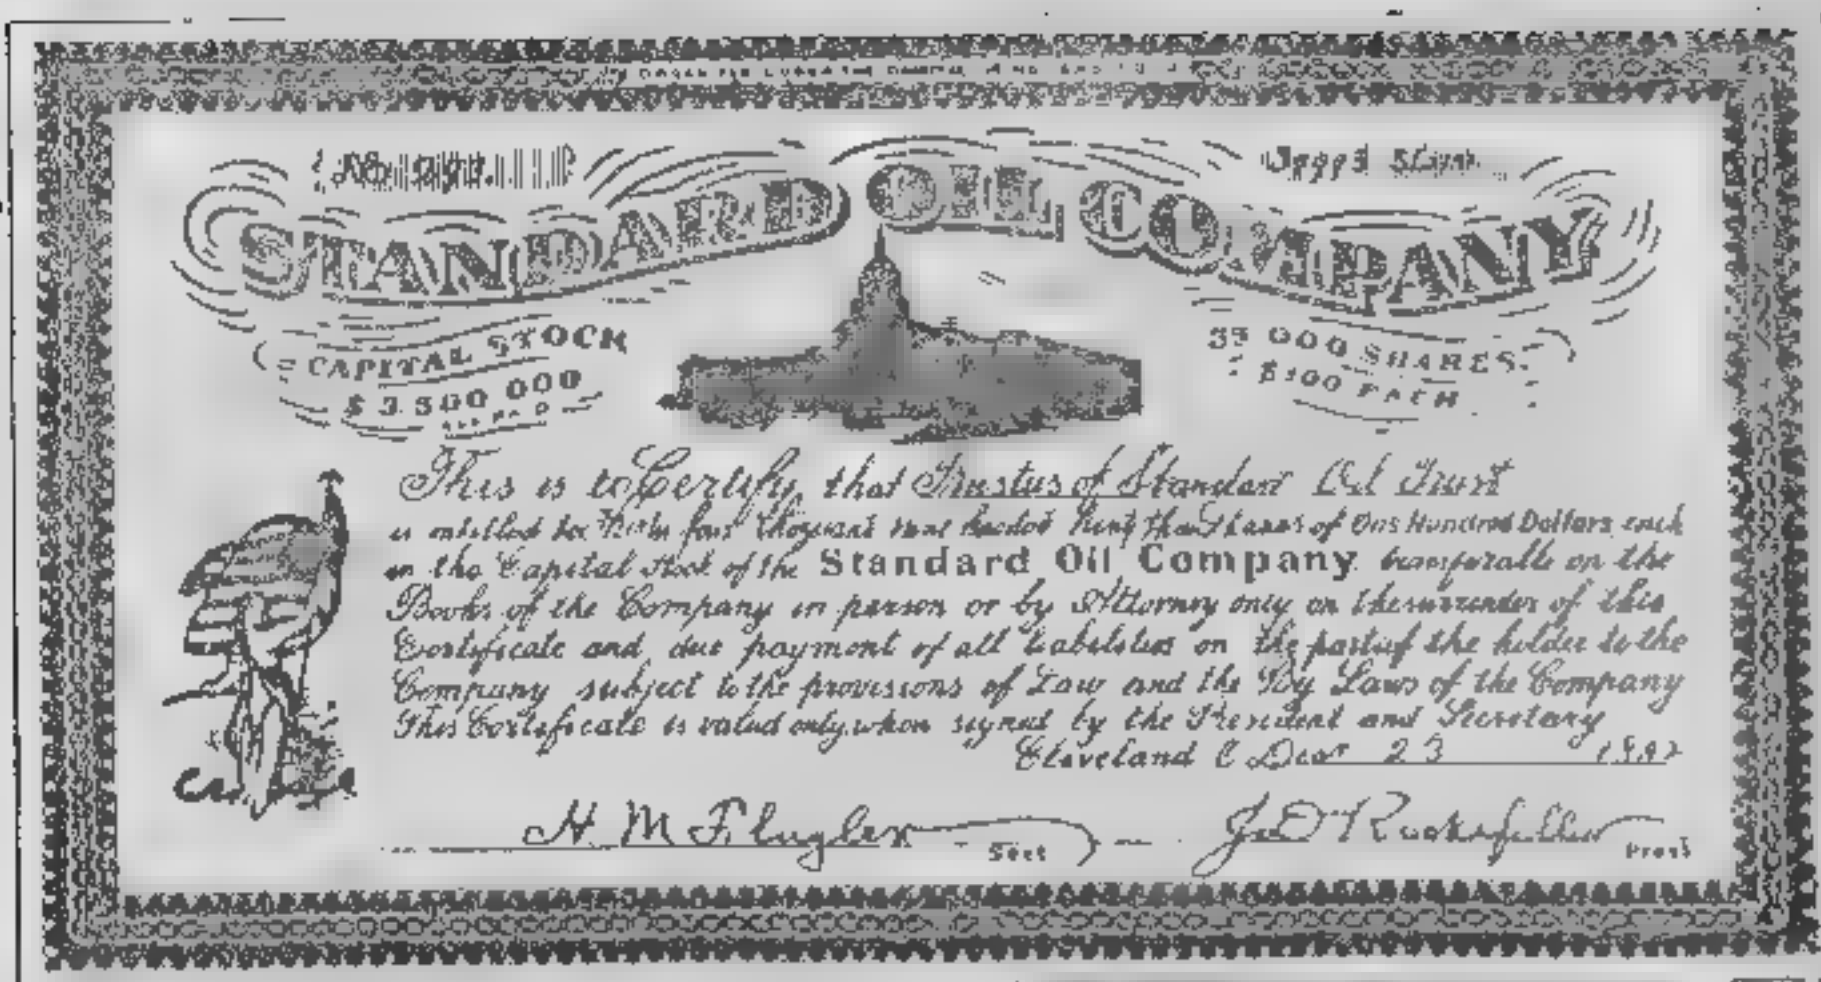 STANDARD OIL COMPANY
CAPITAL STOCK
$3.500 000
35 000 SHARES
$100 EACH
This is to Certify that Trustus of Standard Oil Trust
is entitled to four thousand of One Hundred Dollars each
in the Capital Stock of the Standard Oil Company transferable on the
Books of the Company in person or by Attorney only on the surrender of this
Certificate and due payment of all liabilities on the part of the holder to the
Company subject to the provisions of Law and the By Laws of the Company
This Certificate is valid only when signed by the President and Secretary
Cleveland O 23
H M Flagler Sect
Jno D Rockefeller Prest